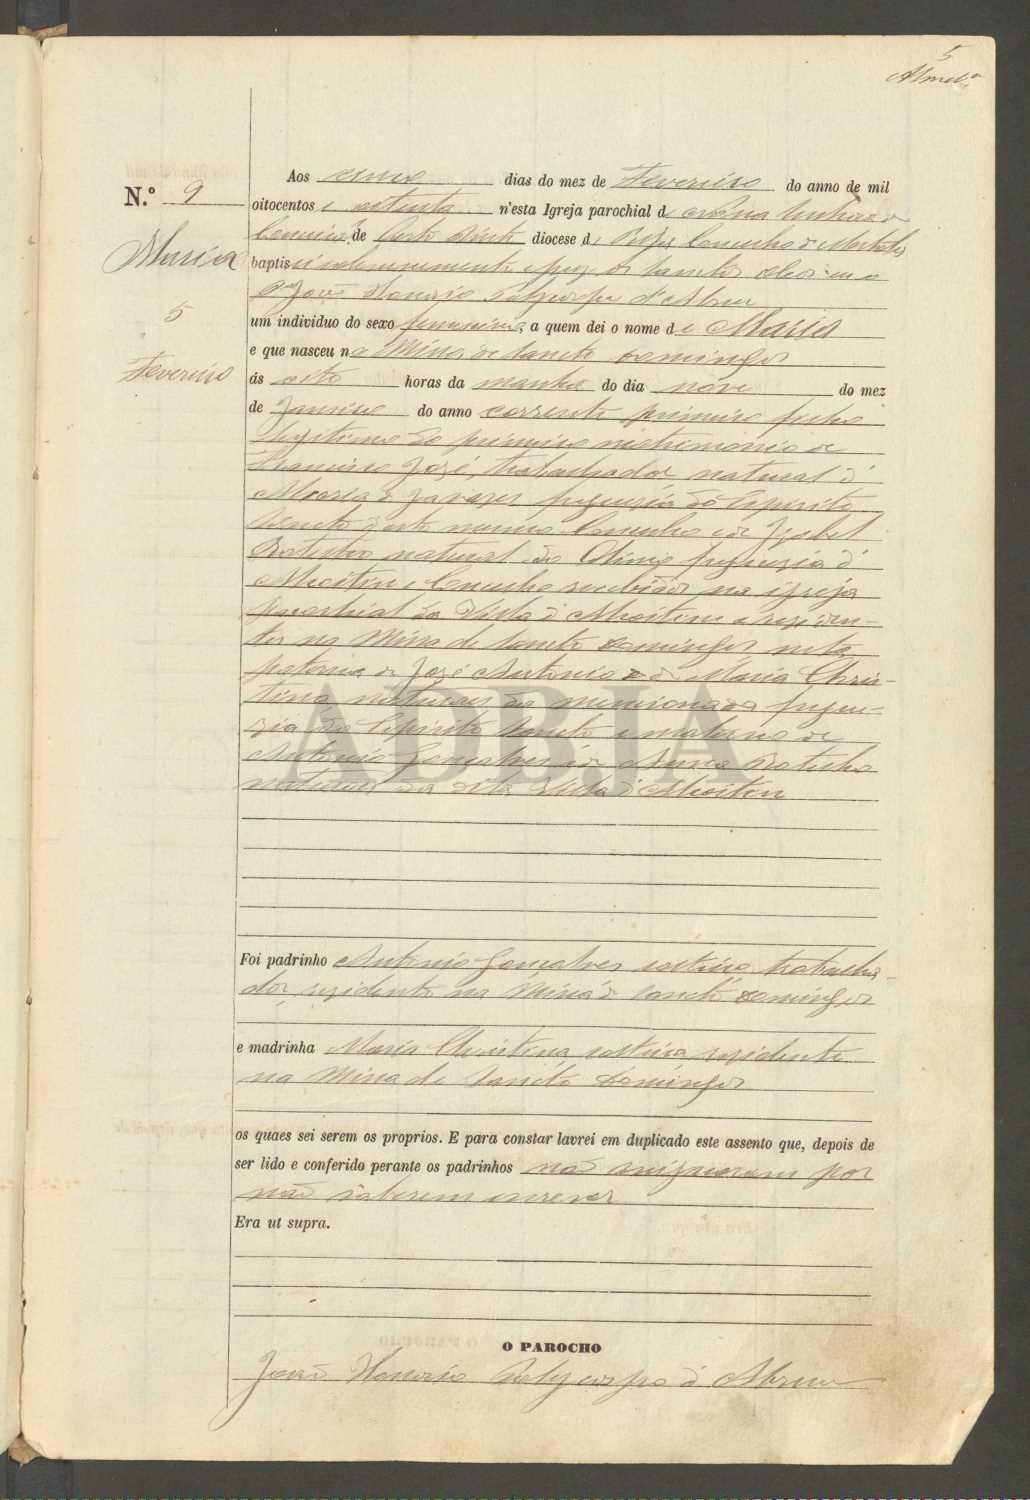 5
N.º 9
Maria
5
Fevereiro
Aos cinco dias do mez de Fevereiro do anno de mil
oitocentos e setenta n'esta Igreja parochial d
de diocese de Beja Concelho de Mertola
baptisei solemnemente e puz os sanctos oleos eu o
P.e João Honorio Polycarpo d'Abreu
um individuo do sexo feminino, a quem dei o nome de Maria
e que nasceu na Mina de Sancto Domingos
ás oito horas da manhã do dia nove do mez
de Janeiro do anno corrente primeiro filho
legitimo do primeiro matrimonio de
Francisco José, trabalhador natural d'
freguezia do Espirito
Sancto deste mesmo Concelho e de Izabel
natural de freguezia d'
e Concelho recebidos na igreja
parochial da Villa d' e residen-
tes na Mina de Sancto Domingos neta
paterna de José Antonio e de Maria Chris-
tina naturaes da mencionada fregue-
zia do Espirito Sancto e materna de
Antonio Gonçalves e de Anna
naturaes da dita Villa d'
Foi padrinho Antonio Gonçalves solteiro trabalha-
dor, rezidente na Mina de Sancto Domingos
e madrinha Maria Christina solteira rezidente
na Mina de Sancto Domingos
os quaes sei serem os proprios. E para constar lavrei em duplicado este assento que, depois de
ser lido e conferido perante os padrinhos não assignaram por
não saberem escrever
Era ut supra.
O PAROCHO
João Honorio Polycarpo d'Abreu
ADBJA